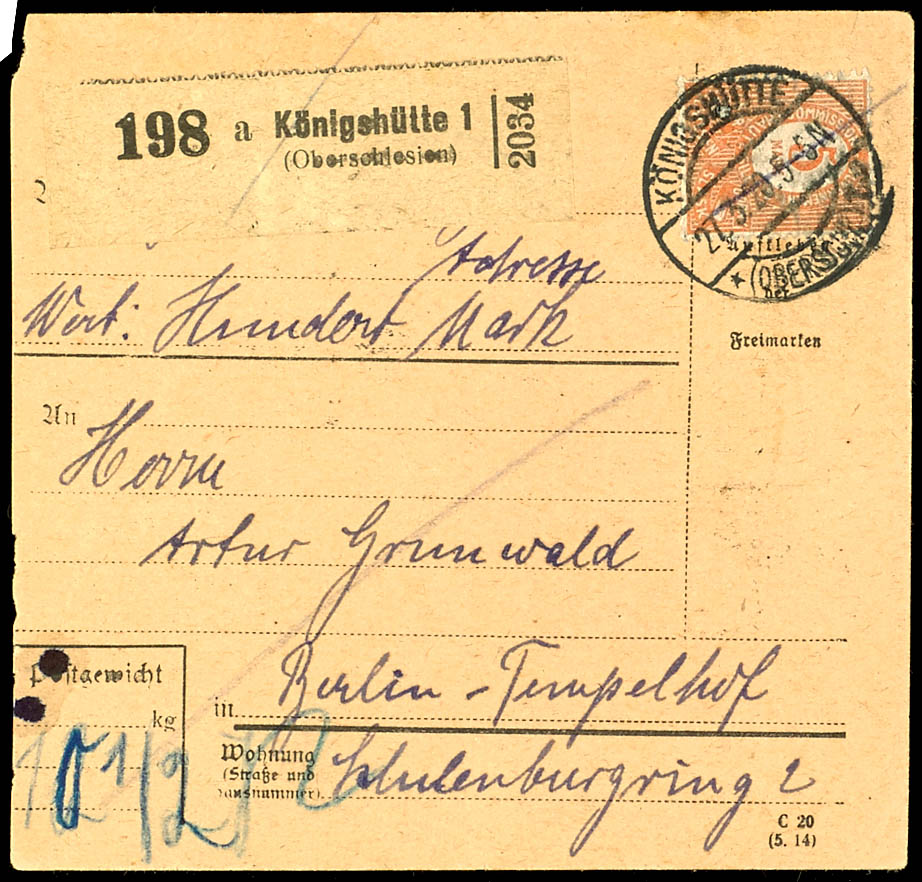 198 a Königshütte 1
(Oberschlesien)
2034
KÖNIGSHÜTTE
27.5.20.5-6N
* (OBERSCHL.)
COMMISSION
5
Aufkleben
der
Freimarken
Adresse
Wert: Hundert Mark
An
Herrn
Artur Grunwald
Postgewicht
kg
in Berlin-Tempelhof
Wohnung
(Straße und
Hausnummer) Schulenburgring 2
C 20
(5. 14)